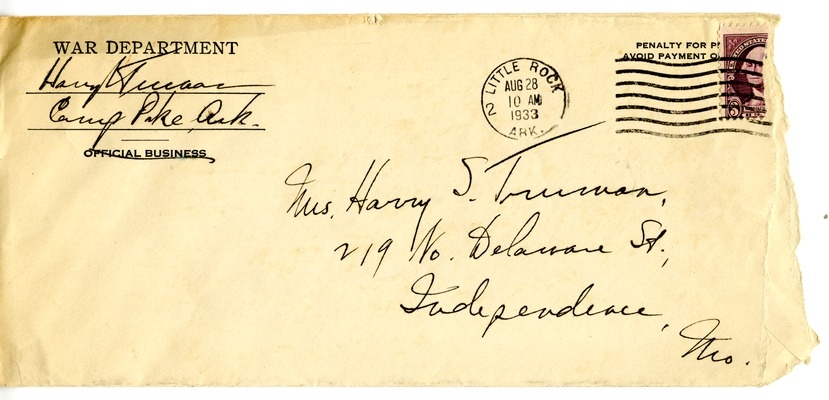 WAR DEPARTMENT
Harry S Truman
Camp Pike, Ark.
OFFICIAL BUSINESS
2 LITTLE ROCK
AUG 28
10 AM
1933
ARK.
PENALTY FOR
AVOID PAYMENT
UNITED STATES
3
Mrs. Harry S. Truman,
219 No. Delaware St.,
Independence,
Mo.